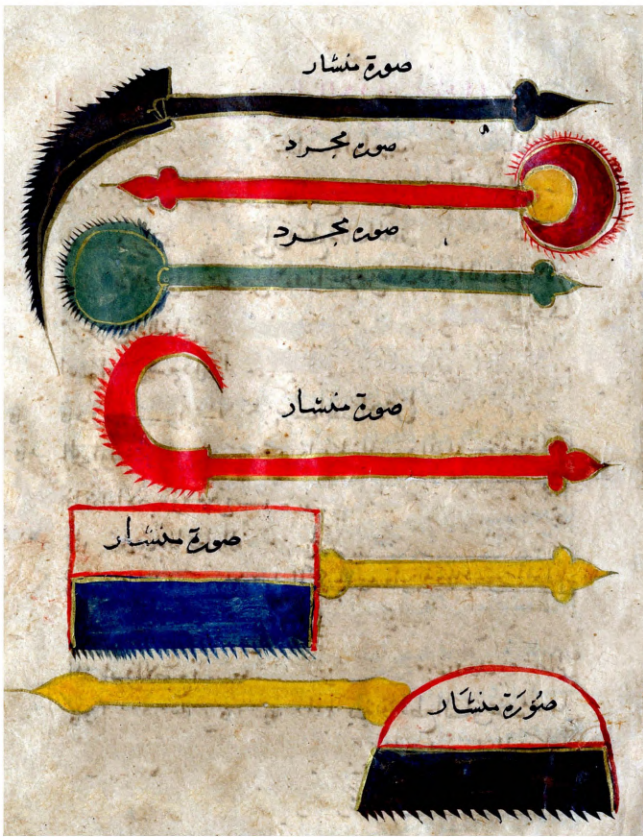 صورة منشار
صورة مجرد
صورة مجرد
صورة منشار
صورة منشار
صُورَة منشَار